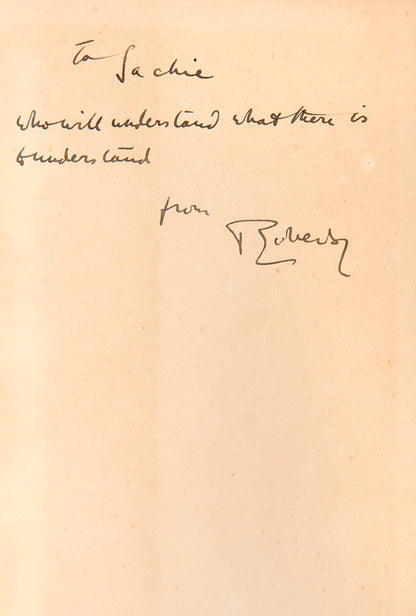 To Sachie
who will understand what there is
to understand
from